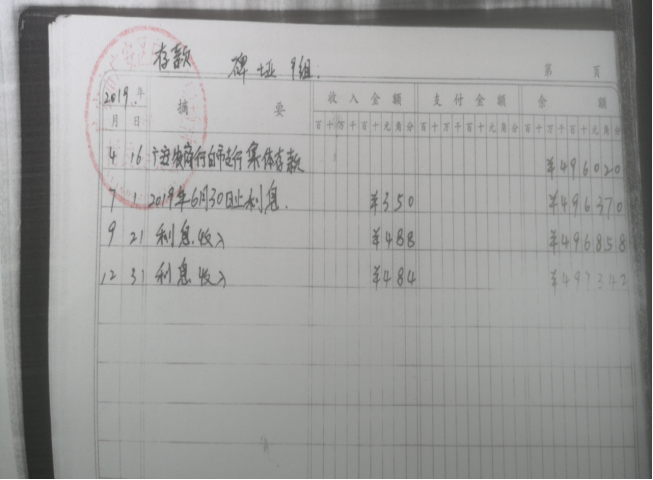 存款 碑垭9组.
第 页
2019.年 摘 要 收入金额 支付金额 余 额
月 日 百十万千百十元角分 百十万千百十元角分 百十万千百十元角分
4 16 广安农商行白市支行集体存款 ¥496020
7 1 2019年6月30日止利息. ¥350 ¥496370
9 21 利息收入 ¥488 ¥496858
12 31 利息收入 ¥484 ¥497342